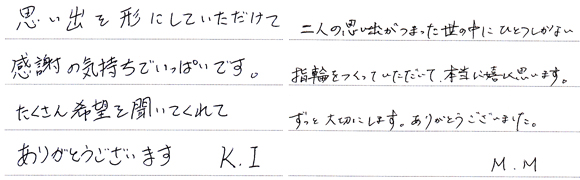 思い出を形にしていただけて
感謝の気持ちでいっぱいです。
たくさん希望を聞いてくれて
ありがとうございます K.I
二人の思い出がつまった世の中にひとつしかない
指輪をつくっていただいて、本当に嬉しく思います。
ずっと大切にします。ありがとうございました。
M.M